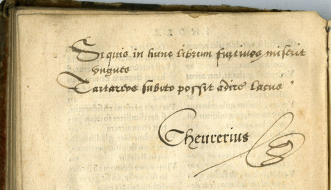 Si quis in hunc librum furtivos miserit
vngues
Tartareos subito possit adire lacus
Cheurerius